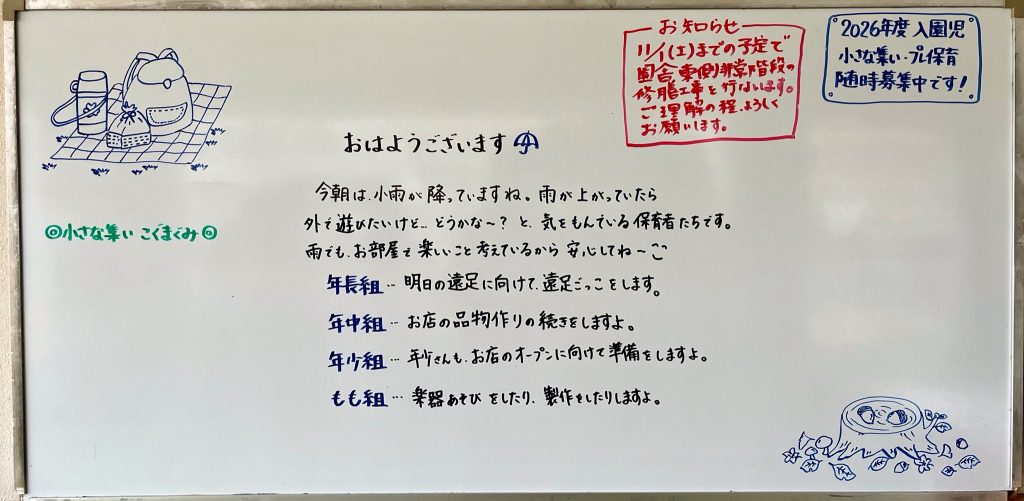 お知らせ
11/1(土)までの予定で
園舎東側非常階段の
修膳工事を行ないます。
ご理解の程、よろしく
お願いします。
2026年度 入園児
小さな集い・プレ保育
随時募集中です!
おはようございます
◎小さな集い こぐまぐみ◎
今朝は、小雨が降っていますね。雨が上がっていたら
外で遊びたいけど…どうかな～?と、気をもんでいる保育者たちです。
雨でも、お部屋で楽しいこと考えているから安心してね～
年長組…明日の遠足に向けて、遠足ごっこをします。
年中組…お店の品物作りの続きをしますよ。
年少組…年少さんも、お店のオープンに向けて準備をしますよ。
もも組…楽器あそびをしたり、製作をしたりしますよ。